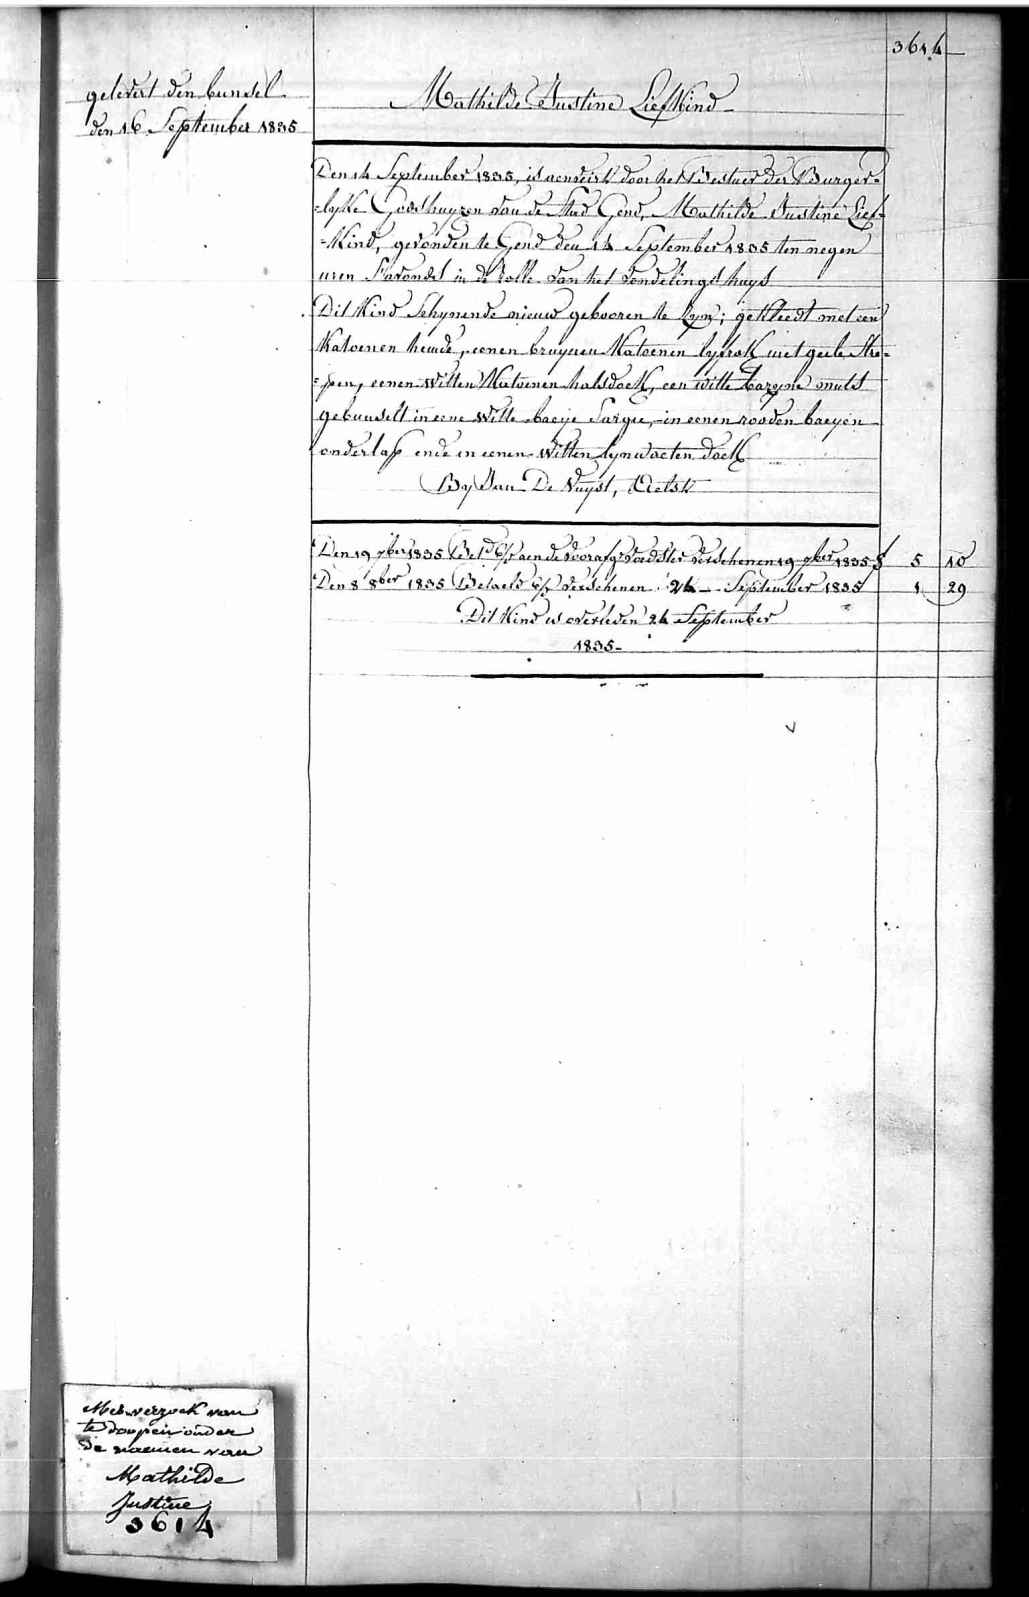 3614
gelevert den bunsel
den 16 September 1835
Mathilde Justine Liefkind
Den 14 September 1835, is aenveirt door het Bestuer der Burger=
=lyke Godshuyzen van de Stad Gend, Mathilde Justine Lief=
=Kind, gevonden te Gend den 14 September 1835 ten negen
uren s'avonds in de rolle van het vondelingshuys
Dit Kind Schynende nieuw gebooren te zyn; gekleedt met een
Katoenen hemde, eenen bruynen Katoenen lyfrok met geele Stre=
=pen, eenen Witten Katoenen halsdoek, een witte bazyne muts
gebunselt in eene Witte baeije Sargie, in eenen rooden baeyen
onderlap ende in eenen Witten lynwaeten doek
By Jan De Nuyst, Aelst
Den 19 7ber 1835 aen de voorafg voedster verschenen 19 7ber 1835 f 5 10
Den 8 8ber 1835 Betaeld verschenen 24 September 1835 1 29
Dit Kind is overleden 24 September
1835
Met verzoek van
te doopen onder
de naemen van
Mathilde
Justine
3614